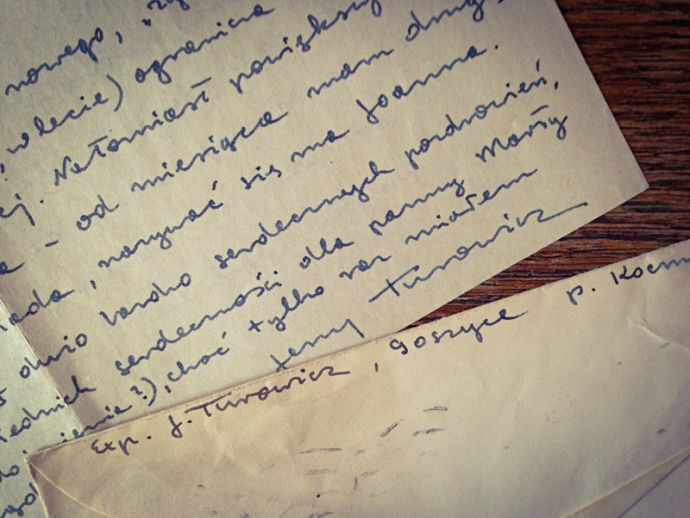 nowego,
, w lecie) ogranicza
ej. Natomiast powiększy
a - od miesiąca mam drug
iada, nazywać się ma Joanna.
dużo bardzo serdecznych pozdrowień,
iednich serdeczności dla panny Marty
ienie?), choć tylko raz miałem
Jerzy Turowicz
Exp. J. Turowicz, Goszyce p. Kocm